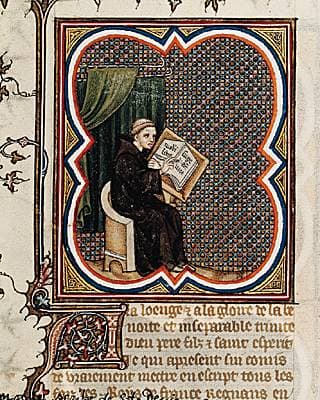 A la loenge & a la gloire de la be
noite et inseparable trinite
dieu pere filz & saint esperit
Je qui apresent sui comis
de vraiement mettre en escript tous les
des Roys de france Regnans en